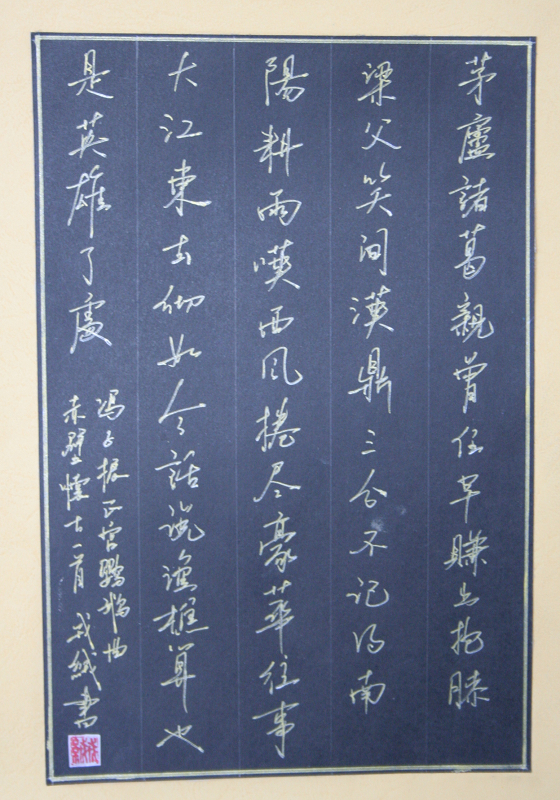 茅廬諸葛親曾住早賺出抱膝
梁父笑間漢鼎三分不記得南
陽耕雨嘆西風捲尽豪華往事
大江東去彻如今話說漁樵算也
是英雄了處
冯子振正宫鹦鹉曲
赤壁懷古一首 成絨書